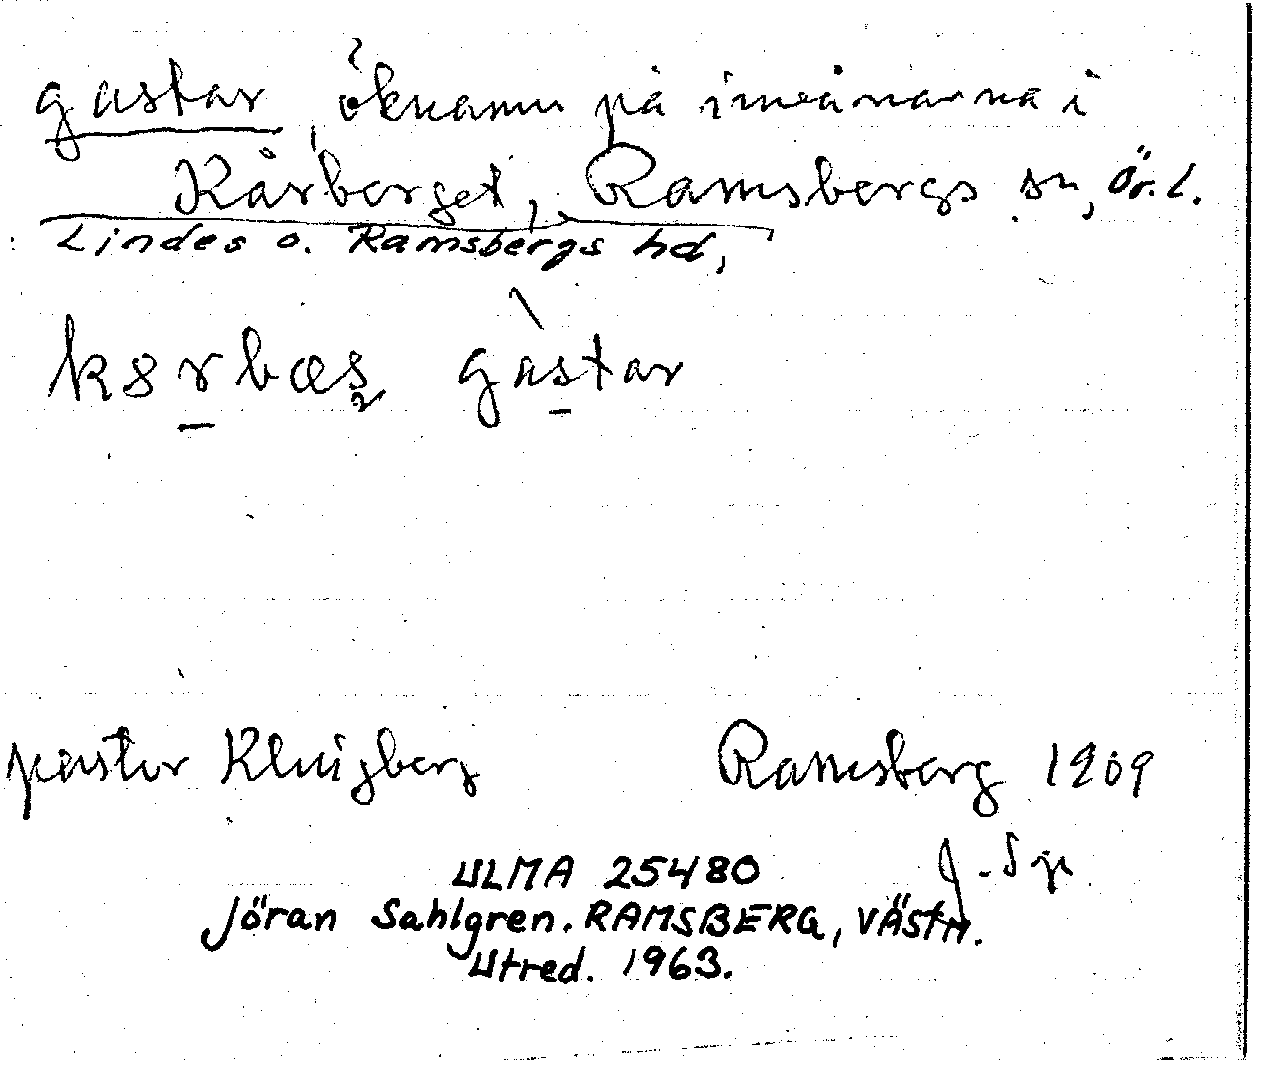 gastar, öknamn på invånarna i
Kårberget, Ramsbergs sn, Ör. l.
Lindes o. Ramsbergs hd,
gàstar
pastor Klingberg Ramsberg 1909
J. S-gr
ULMA 25480
Jöran Sahlgren. RAMSBERG, VÄSTM.
Utred. 1963.